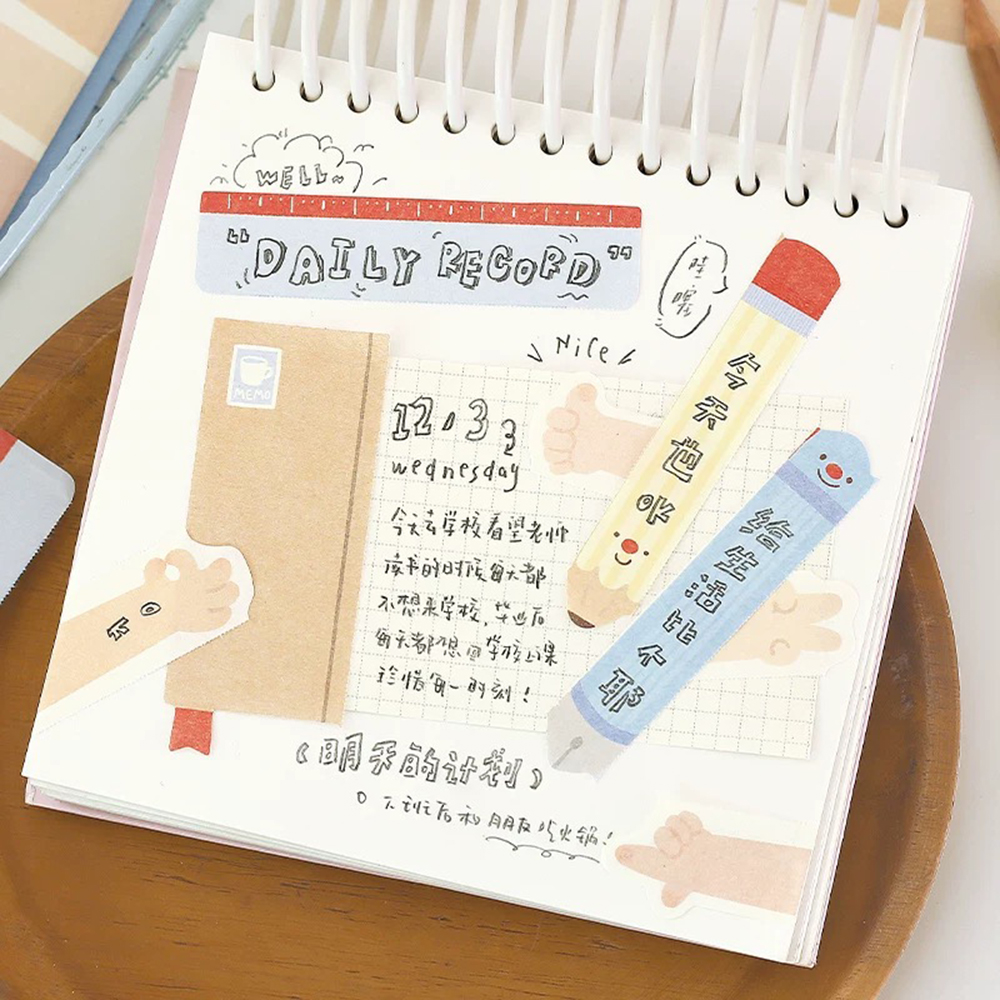 WELL~
"DAILY RECORD"
哇噻
Nice
MEMO
12.33
wednesday
今天去学校看望老师
读书的时候每天都
不想来学校,毕业后
每天都想回学校上课
珍惜每一时刻!
今天也OK
给生活比个耶
OK
《明天的计划》
○ 下班后和朋友吃火锅!